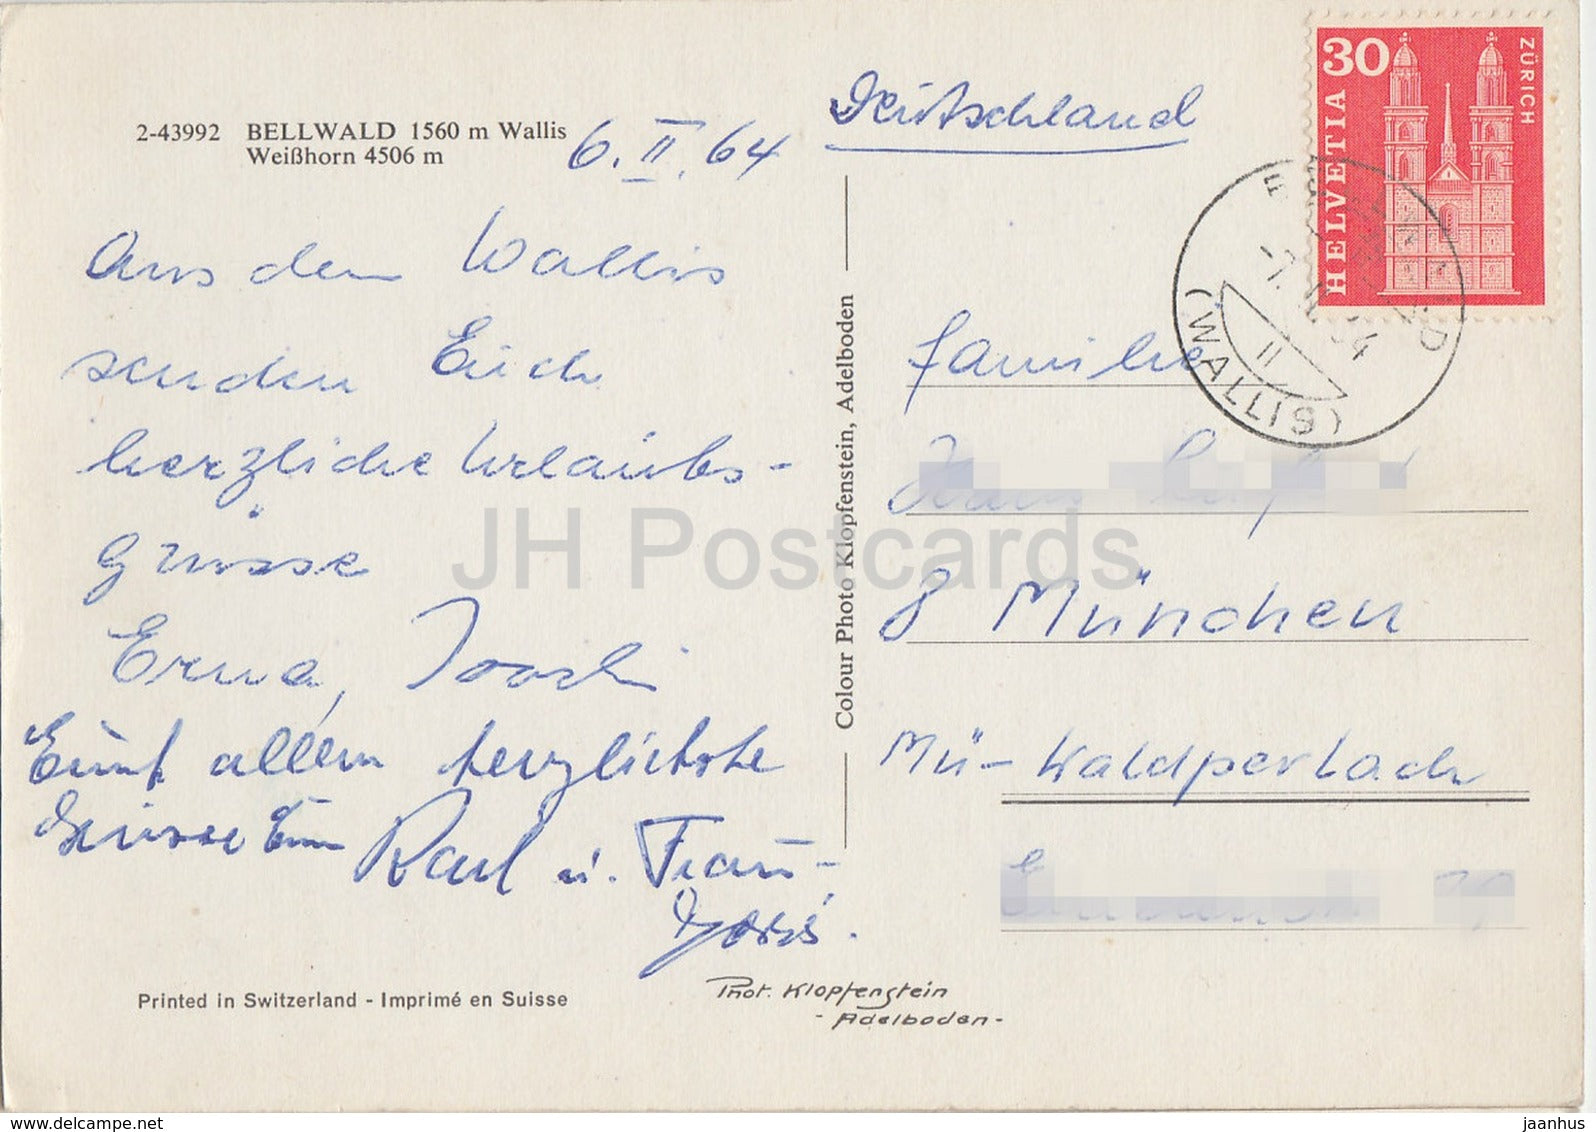 2-43992 BELLWALD 1560 m Wallis
Weißhorn 4506 m
6. II. 64
Aus dem Wallis
senden Euch
herzliche Urlaubs-
grüsse
Erna,
Euch allen herzlichste
Grüsse Eure Karl u. Frau
Deutschland
30
HELVETIA
ZÜRICH
(WALLIS)
Familie
8 München
Mü-Waldperlach
Colour Photo Klopfenstein, Adelboden
Printed in Switzerland - Imprimé en Suisse
Phot. Klopfenstein
- Adelboden -
JH Postcards
www.delcampe.net
jaanhus